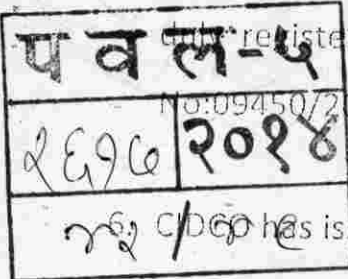 duly registe
पवल-५
No:09450/2
२६१७ २०१४
6. CIDCO has is